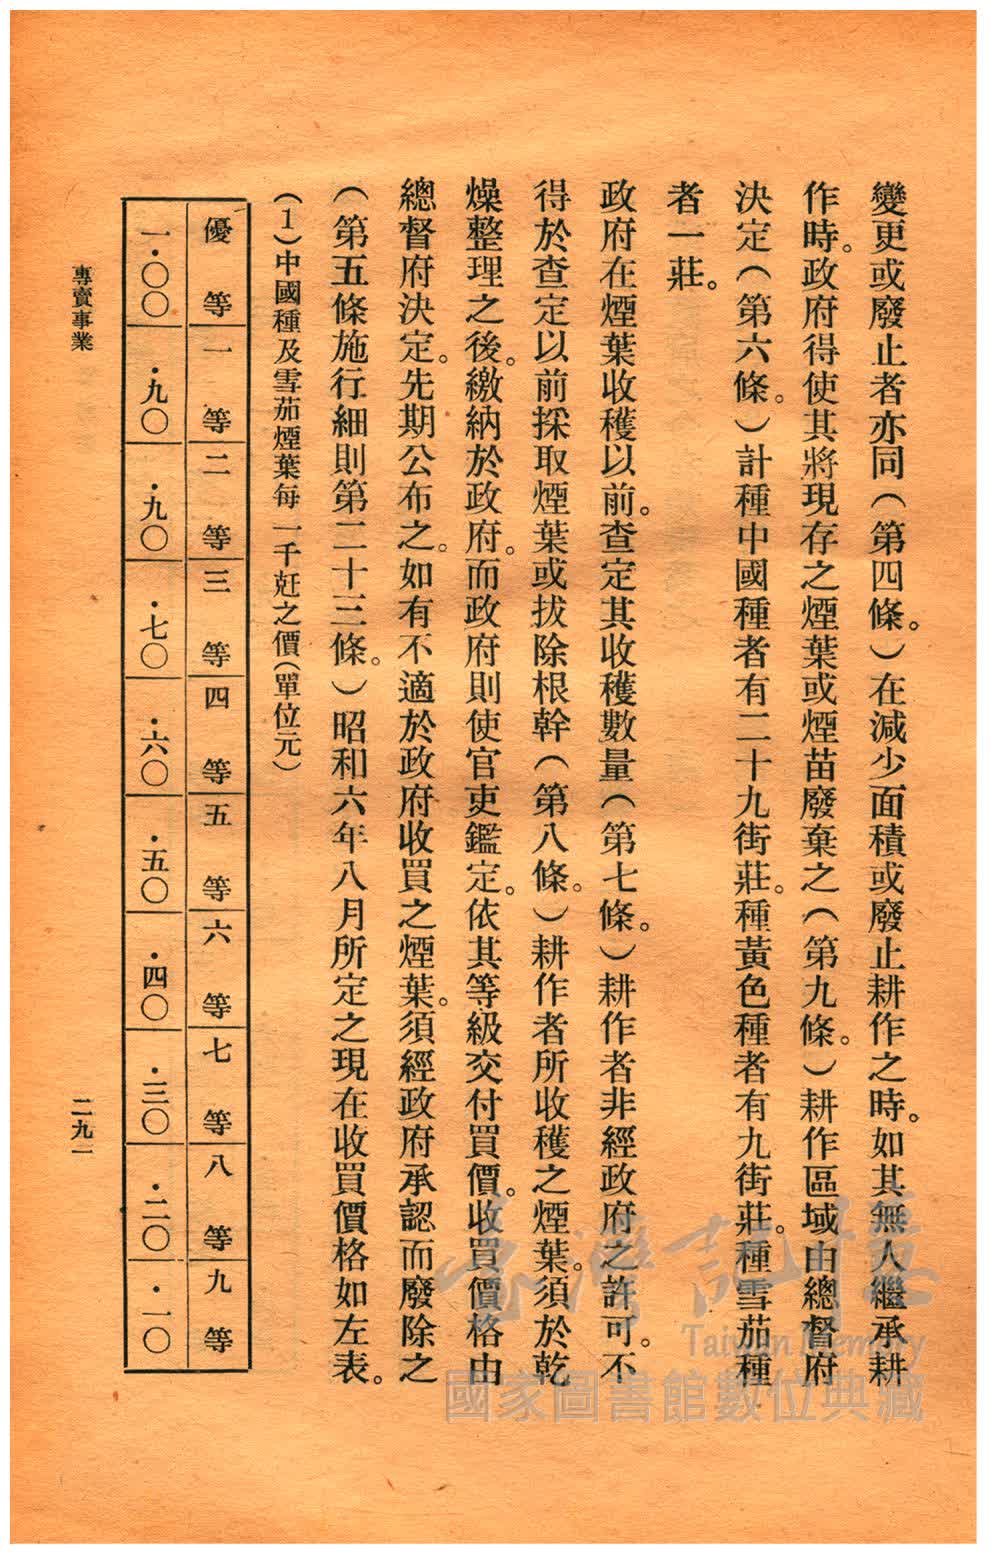 變更或廢止者亦同(第四條。)在減少面積或廢止耕作之時。如其無人繼承耕
作時。政府得使其將現存之煙葉或煙苗廢棄之(第九條。)耕作區域由總督府
決定(第六條。)計種中國種者有二十九街莊。種黃色種者有九街莊。種雪茄種
者一莊。
政府在煙葉收穫以前。查定其收穫數量(第七條。)耕作者非經政府之許可。不
得於查定以前採取煙葉或拔除根幹(第八條。)耕作者所收穫之煙葉。須於乾
燥整理之後。繳納於政府。而政府則使官吏鑑定。依其等級交付買價。收買價格由
總督府決定。先期公布之。如有不適於政府收買之煙葉。須經政府承認而廢除之
(第五條施行細則第二十三條。)昭和六年八月所定之現在收買價格如左表。
(1)中國種及雪茄煙葉每一千瓩之價(單位元)
優等 一等 二等 三等 四等 五等 六等 七等 八等 九等
一·〇〇 ·九〇 ·九〇 ·七〇 ·六〇 ·五〇 ·四〇 ·三〇 ·二〇 ·一〇
專賣事業
二九一
臺灣記憶
Taiwan Memory
國家圖書館數位典藏